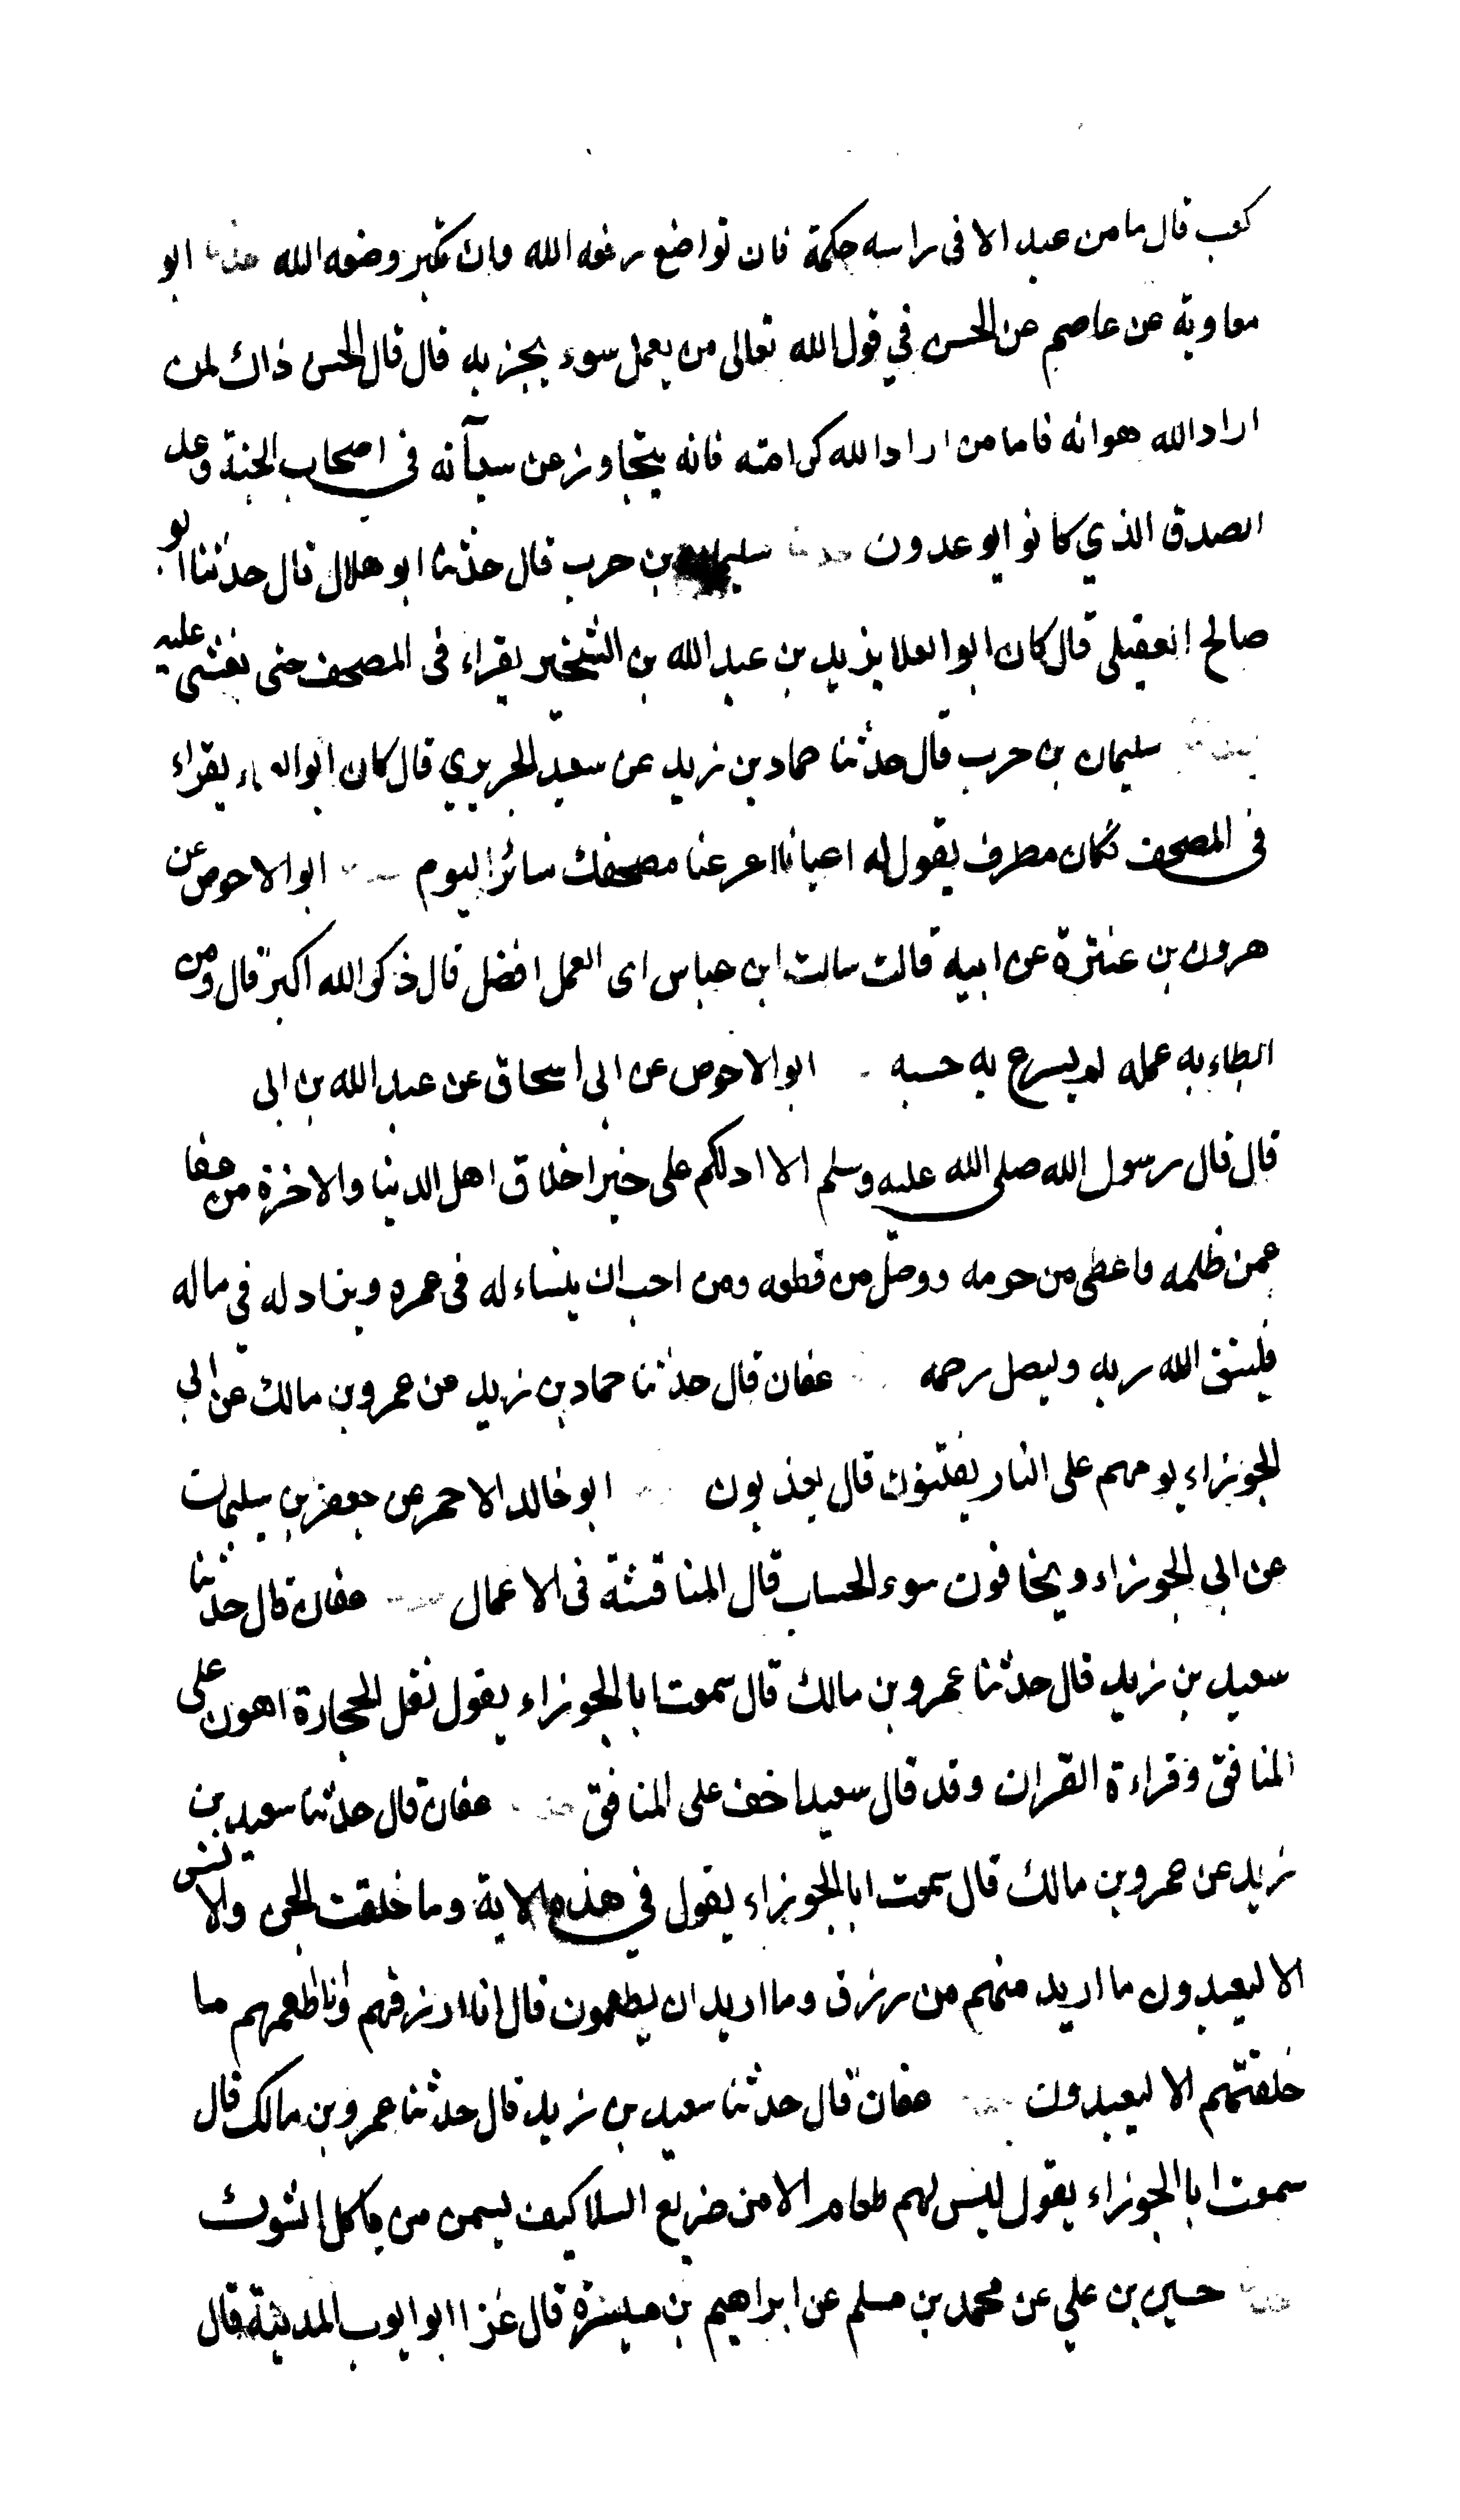 كعب قال ما من عبد الا في راسه حكمة فان تواضع رفعه الله وان تكبر وضعه الله حدثنا ابو
معاوية عن عاصم عن الحسن في قول الله تعالى من يعمل سوء يجز به قال قال الحسن ذاك لمن
اراد الله هوانه فاما من اراد الله كرامته فانه يتجاوز عن سيآته في اصحاب الجنة وعد
الصدق الذي كانوا يوعدون حدثنا سليمان بن حرب قال حدثنا ابو هلال قال حدثنا ابو
صالح العقيلي قال كان ابو العلا يزيد بن عبد الله بن الشخير يقراء في المصحف حتى يغشى عليه
سليمان بن حرب قال حدثنا حماد بن زيد عن سعيد الجريري قال كان ابو العلاء يقراء
في المصحف فكان مطرف يقول له احيانا اعر عنا مصحفك سائر اليوم ابو الاحوص عن
هرون بن عنترة عن ابيه قالت سالت ابن عباس اى العمل افضل قال ذكر الله اكبر قال ومن
ابطاء به عمله لم يسرع به حسبه ابو الاحوص عن ابى اسحاق عن عبد الله بن ابى
قال قال رسول الله صلى الله عليه وسلم الا ادلكم على خير اخلاق اهل الدنيا والاخرة من عفا
عمن ظلمه واعطى من حرمه ووصل من قطعه ومن احب ان ينساء له في عمره ويزاد له في ماله
فليتق الله ربه وليصل رحمه عفان قال حدثنا حماد بن زيد عن عمرو بن مالك عن ابي
الجوزاء يومهم على النار يفتنون قال يعذبون ابو خالد الاحمر عن جعفر بن سليمان
عن ابي الجوزاء ويخافون سوء الحساب قال المناقشة في الاعمال عفان قال حدثنا
سعيد بن زيد قال حدثنا عمرو بن مالك قال سمعت ابا الجوزاء يقول نقل الحجارة اهون على
المنافق وقراءة القران وقد قال سعيد اخف على المنافق عفان قال حدثنا سعيد بن
زيد عن عمرو بن مالك قال سمعت ابا الجوزاء يقول في هذه الاية وما خلقت الجن والانس
الا ليعبدون ما اريد منهم من رزق وما اريد ان يطعمون قال انا ارزقهم وانا اطعمهم ما
خلقتهم الا ليعبدون عفان قال حدثنا سعيد بن زيد قال حدثنا عمرو بن مالك قال
سمعت ابا الجوزاء يقول ليس لهم طعام الا من ضريع السلا كيف يسمن من ياكل الشوك
حدثنا حسين بن علي عن محمد بن مسلم عن ابراهيم بن ميسرة قال غزا ابو ايوب المدينة قال